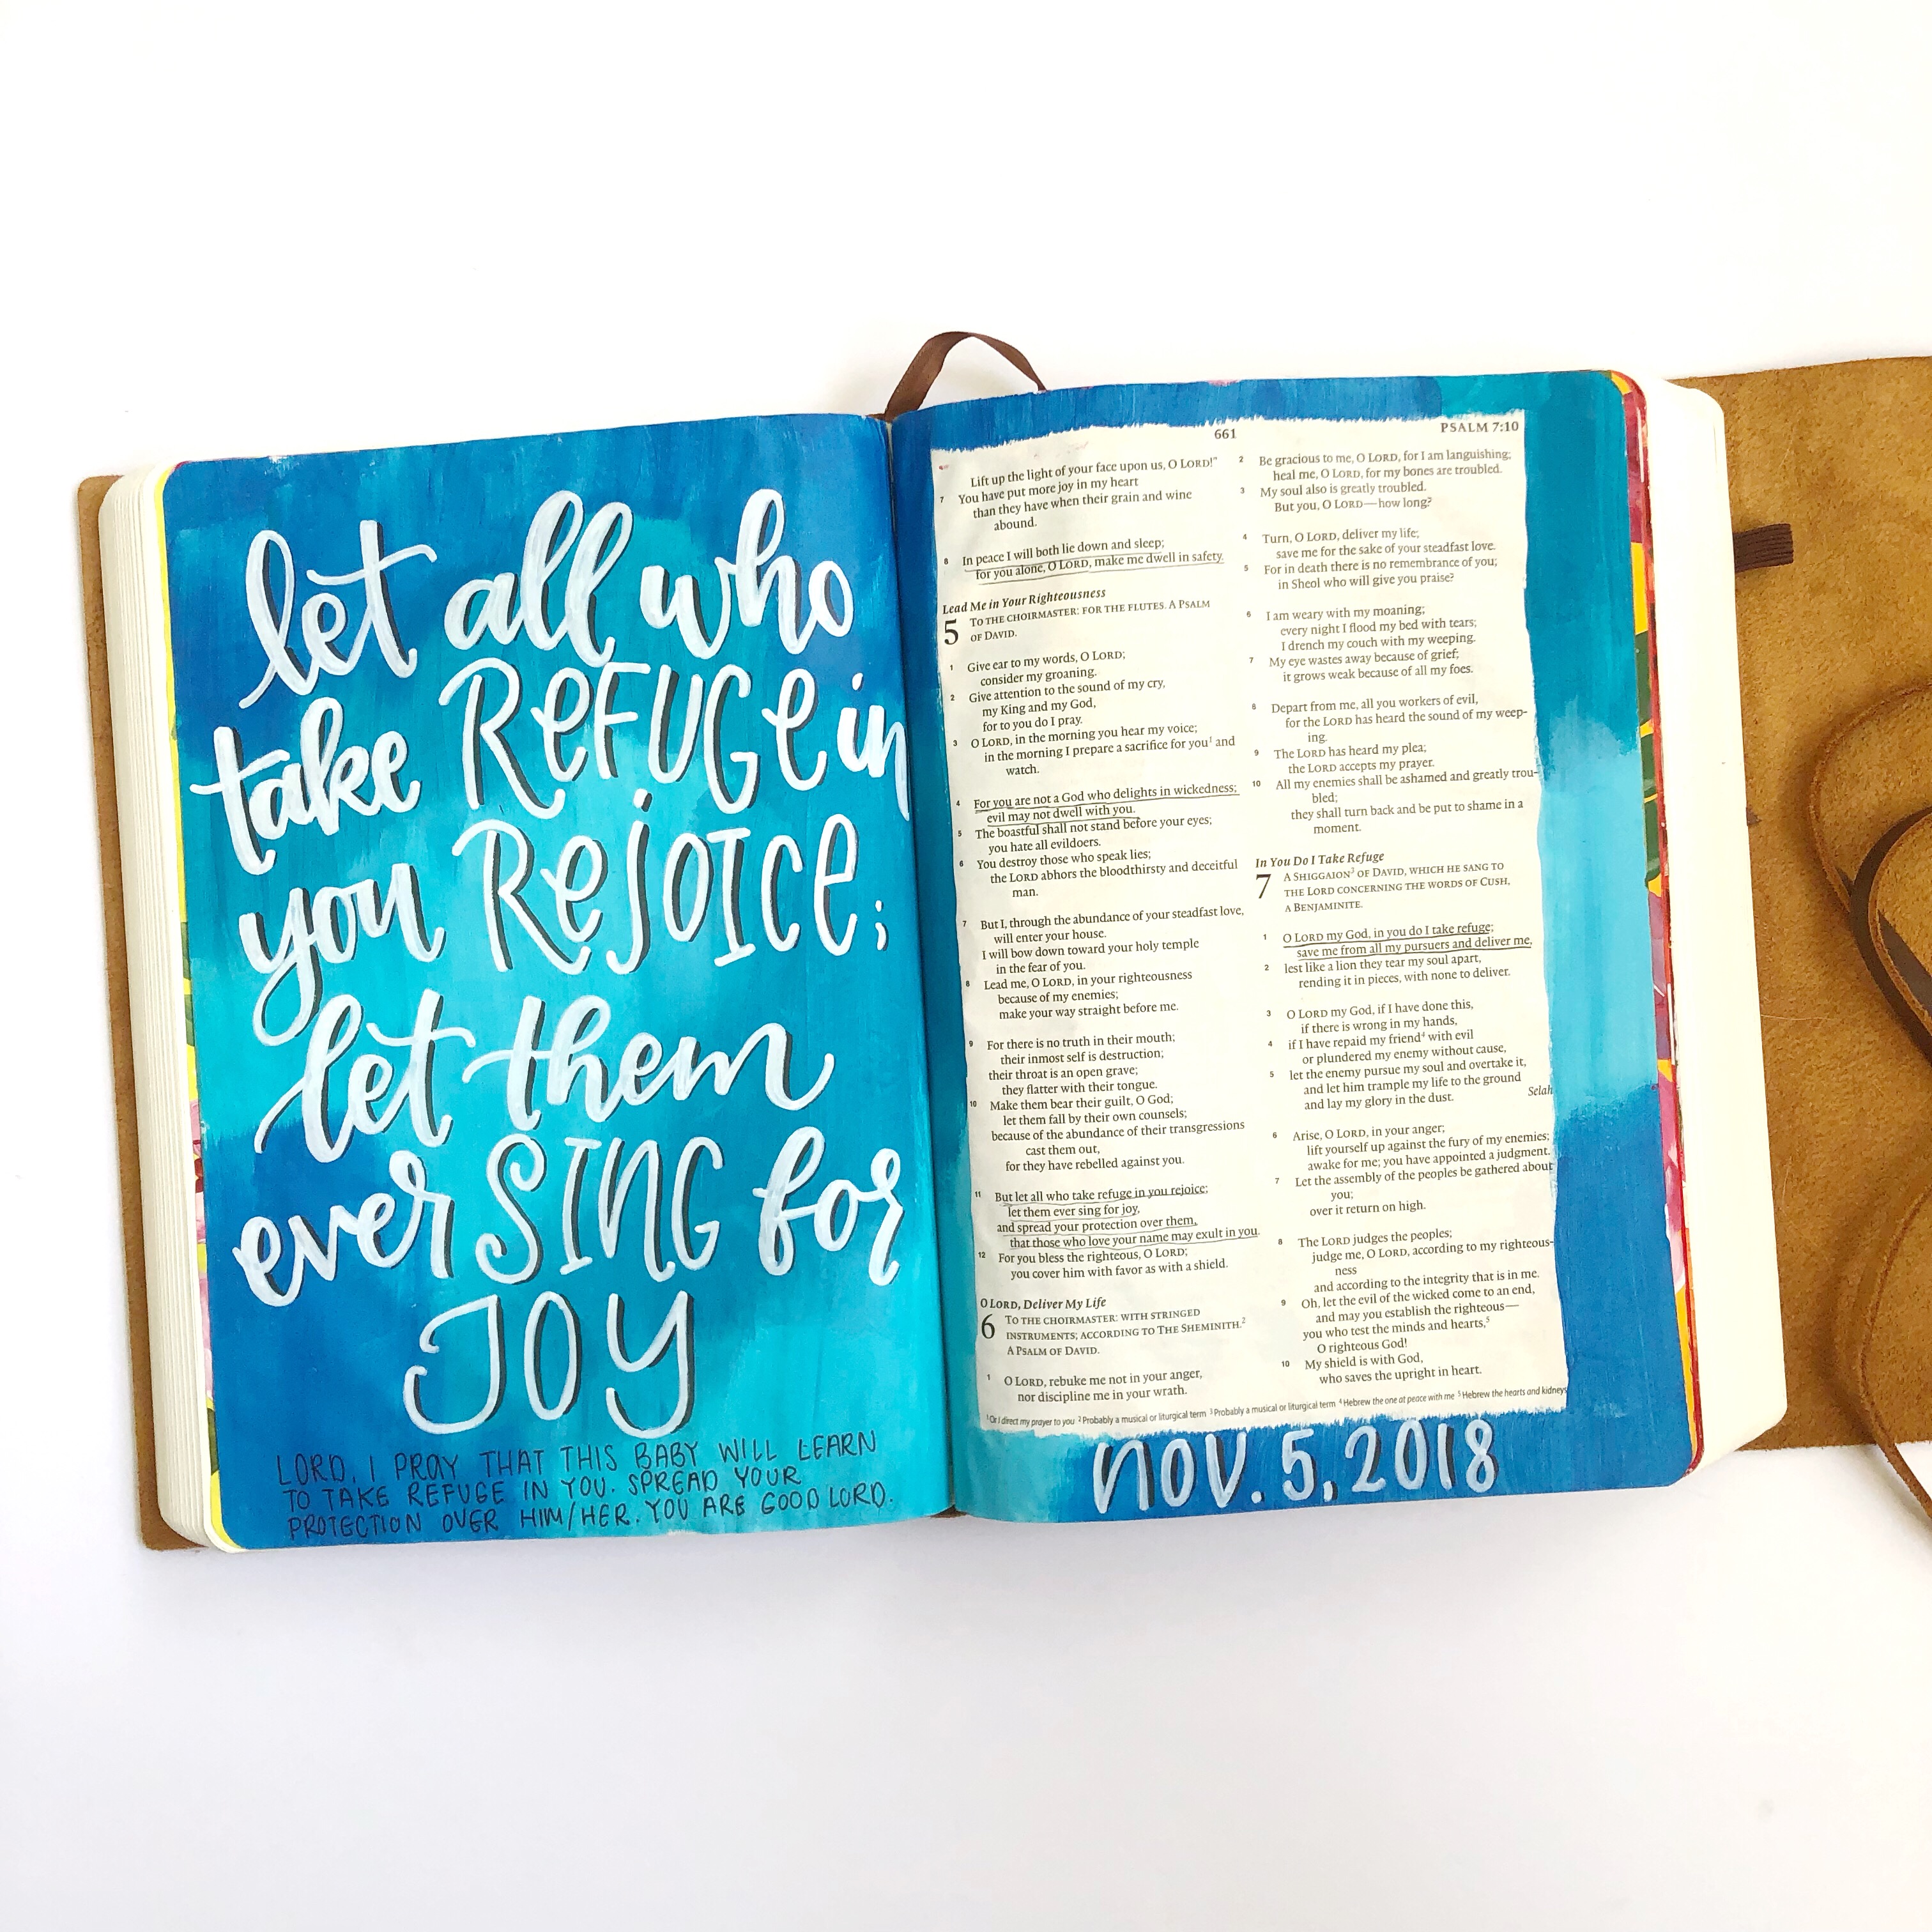 let all who
take REFUGE in
you REJOICE;
let them
ever SING for
JOY
LORD, I PRAY THAT THIS BABY WILL LEARN
TO TAKE REFUGE IN YOU. SPREAD YOUR
PROTECTION OVER HIM/HER. YOU ARE GOOD LORD.
661
PSALM 7:10
Lift up the light of your face upon us, O LORD!"
7 You have put more joy in my heart
than they have when their grain and wine
abound.
8 In peace I will both lie down and sleep;
for you alone, O LORD, make me dwell in safety.
Lead Me in Your Righteousness
5 TO THE CHOIRMASTER: FOR THE FLUTES. A PSALM
OF DAVID.
1 Give ear to my words, O LORD;
consider my groaning.
2 Give attention to the sound of my cry,
my King and my God,
for to you do I pray.
3 O LORD, in the morning you hear my voice;
in the morning I prepare a sacrifice for you¹ and
watch.
4 For you are not a God who delights in wickedness;
evil may not dwell with you.
5 The boastful shall not stand before your eyes;
you hate all evildoers.
6 You destroy those who speak lies;
the LORD abhors the bloodthirsty and deceitful
man.
7 But I, through the abundance of your steadfast love,
will enter your house.
I will bow down toward your holy temple
in the fear of you.
8 Lead me, O LORD, in your righteousness
because of my enemies;
make your way straight before me.
9 For there is no truth in their mouth;
their inmost self is destruction;
their throat is an open grave;
they flatter with their tongue.
10 Make them bear their guilt, O God;
let them fall by their own counsels;
because of the abundance of their transgressions
cast them out,
for they have rebelled against you.
11 But let all who take refuge in you rejoice;
let them ever sing for joy,
and spread your protection over them,
that those who love your name may exult in you.
12 For you bless the righteous, O LORD;
you cover him with favor as with a shield.
O LORD, Deliver My Life
6 TO THE CHOIRMASTER: WITH STRINGED
INSTRUMENTS; ACCORDING TO THE SHEMINITH.²
A PSALM OF DAVID.
1 O LORD, rebuke me not in your anger,
nor discipline me in your wrath.
2 Be gracious to me, O LORD, for I am languishing;
heal me, O LORD, for my bones are troubled.
3 My soul also is greatly troubled.
But you, O LORD—how long?
4 Turn, O LORD, deliver my life;
save me for the sake of your steadfast love.
5 For in death there is no remembrance of you;
in Sheol who will give you praise?
6 I am weary with my moaning;
every night I flood my bed with tears;
I drench my couch with my weeping.
7 My eye wastes away because of grief;
it grows weak because of all my foes.
8 Depart from me, all you workers of evil,
for the LORD has heard the sound of my weep-
ing.
9 The LORD has heard my plea;
the LORD accepts my prayer.
10 All my enemies shall be ashamed and greatly trou-
bled;
they shall turn back and be put to shame in a
moment.
In You Do I Take Refuge
7 A SHIGGAION³ OF DAVID, WHICH HE SANG TO
THE LORD CONCERNING THE WORDS OF CUSH,
A BENJAMINITE.
1 O LORD my God, in you do I take refuge;
save me from all my pursuers and deliver me,
2 lest like a lion they tear my soul apart,
rending it in pieces, with none to deliver.
3 O LORD my God, if I have done this,
if there is wrong in my hands,
4 if I have repaid my friend⁴ with evil
or plundered my enemy without cause,
5 let the enemy pursue my soul and overtake it,
and let him trample my life to the ground
and lay my glory in the dust. Selah
6 Arise, O LORD, in your anger;
lift yourself up against the fury of my enemies;
awake for me; you have appointed a judgment.
7 Let the assembly of the peoples be gathered about
you;
over it return on high.
8 The LORD judges the peoples;
judge me, O LORD, according to my righteous-
ness
and according to the integrity that is in me.
9 Oh, let the evil of the wicked come to an end,
and may you establish the righteous—
you who test the minds and hearts,⁵
O righteous God!
10 My shield is with God,
who saves the upright in heart.
¹ Or I direct my prayer to you ² Probably a musical or liturgical term ³ Probably a musical or liturgical term ⁴ Hebrew the one at peace with me ⁵ Hebrew the hearts and kidneys
NOV. 5, 2018